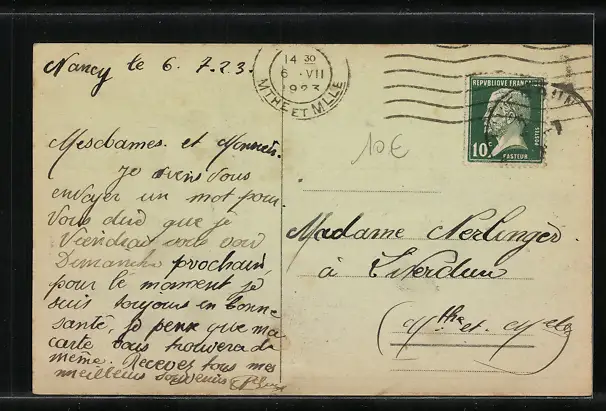 Nancy le 6. 7. 23.
14 30
6 · VII
1923
MTHE ET MLLE
REPUBLIQUE FRANC
POSTES
10c
PASTEUR
10€
Mesdames. et
Je viens vous
envoyer un mot pour
vous dire que je
viendrai vous voir
Dimanche prochain,
pour le moment je
suis toujours en bonne
santé, je pense que ma
carte vous trouvera de
même. Recevez tous mes
meilleurs souvenirs
Madame Nerlinger
à Liverdun
(Mthe et Mele)